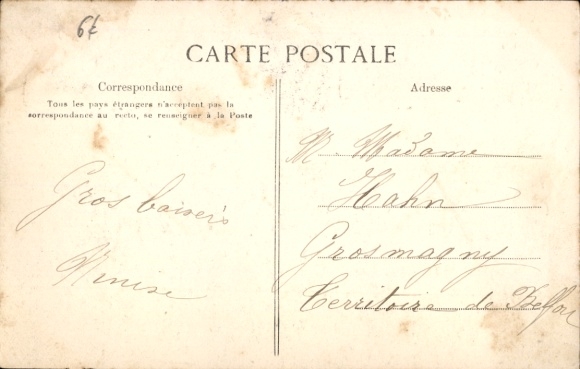 6€
CARTE POSTALE
Correspondance
Tous les pays étrangers n'acceptent pas la
correspondance au recto, se renseigner à la Poste
Gros baisers
Adresse
M. Madame
Hahn
Grosmagny
Territoire de Belfort